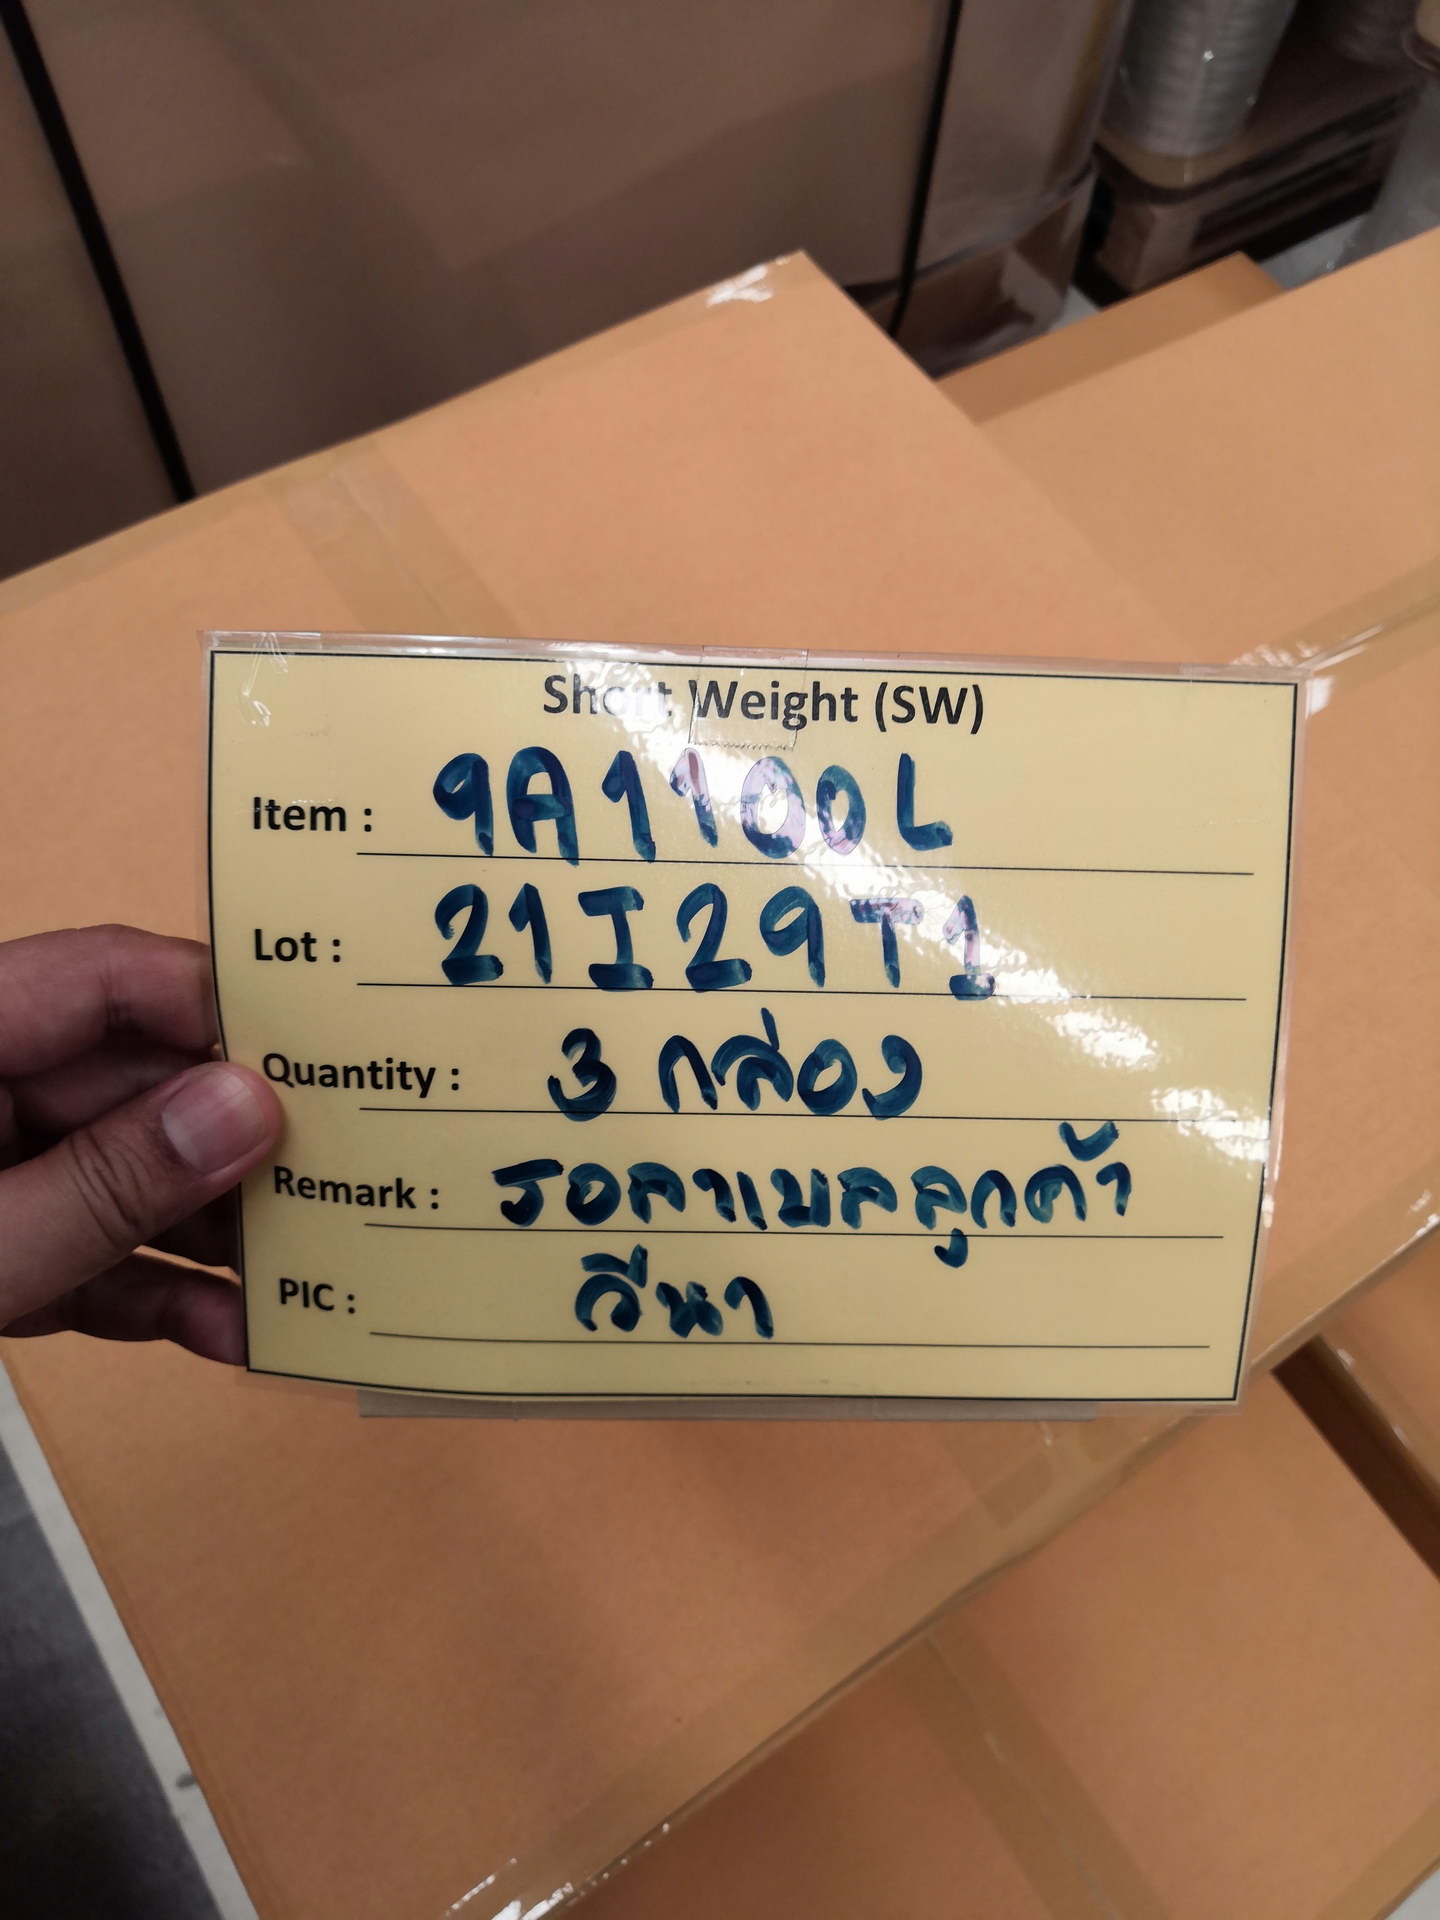 Short Weight (SW)
Item : 9A1100L
Lot : 21I29T1
Quantity : 3 กล่อง
Remark : รอลาเบลลูกค้า
PIC : วีนา